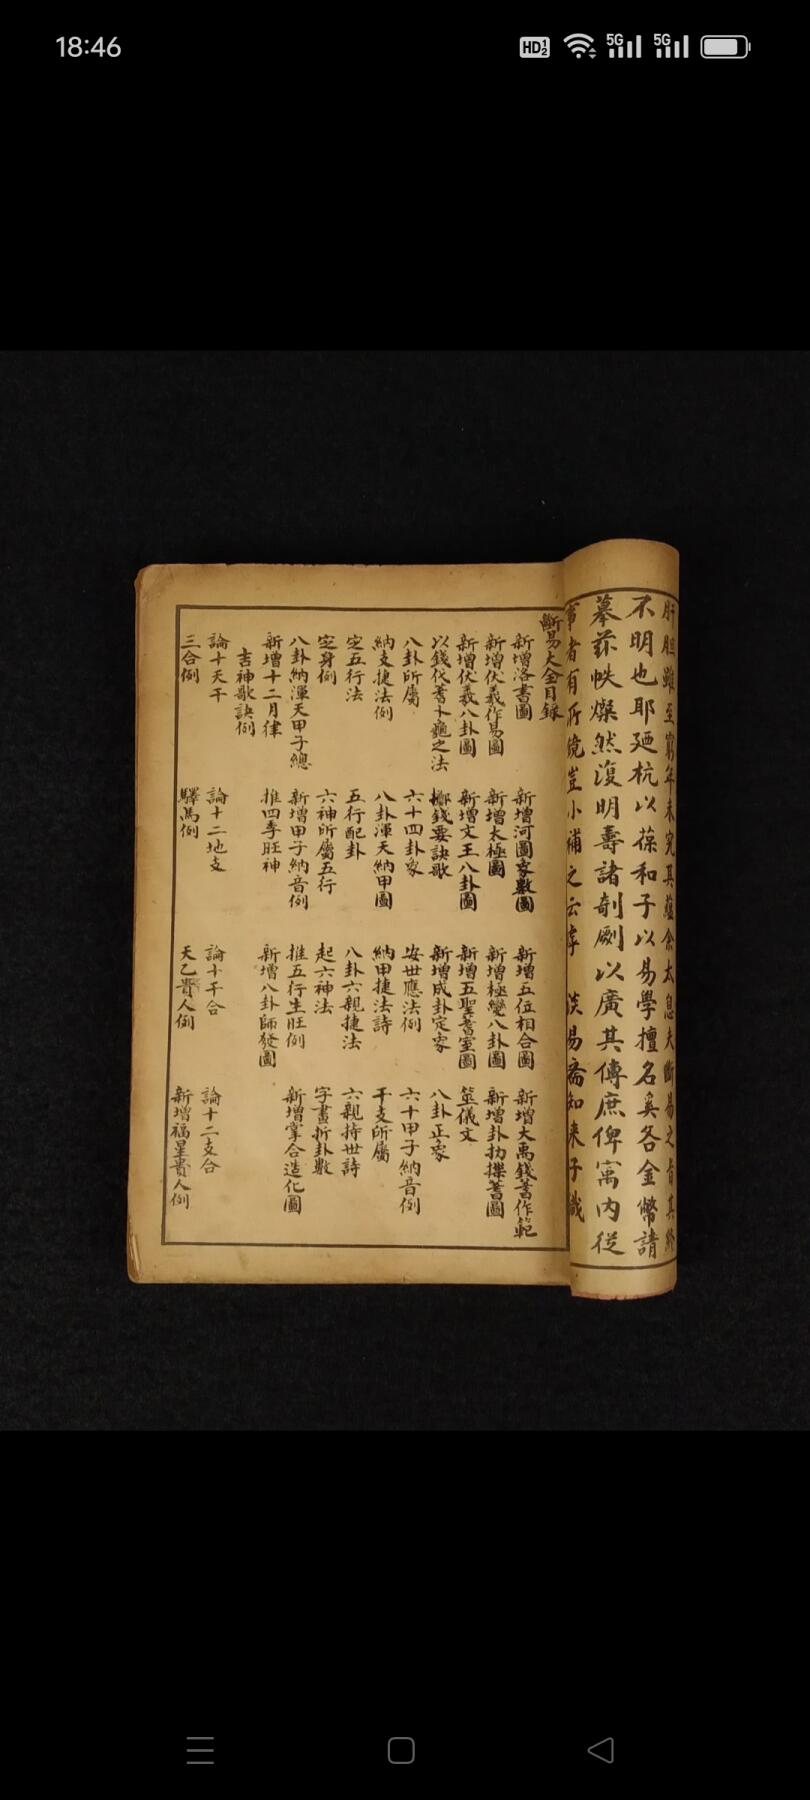 18:46
HD 1 2 5G 5G
肝胆雖至窮年未究其蘊余太息夫斷易之旨其終
不明也耶廼杭以葆和子以易學擅名奚各金幣請
摹茲帙燦然復明壽諸剞劂以廣其傳庶俾寓內從
事者有所鏡豈小補之云乎 談易齋知來子識
斷易大全目錄
新增洛書圖 新增河圖象數圖 新增五位相合圖 新增大禹錢蓍作範
新增伏羲作易圖 新增太極圖 新增極變八卦圖 新增卦扐揲蓍圖
新增伏羲八卦圖 新增文王八卦圖 新增五聖蓍室圖 筮儀文
以錢代蓍卜龜之法 擲錢要訣歌 新增成卦定象 八卦正象
八卦所屬 六十四卦象 安世應法例 六十甲子納音例
納支捷法例 八卦渾天納甲圖 納甲捷法詩 干支所屬
定五行法 五行配卦 八卦六親捷法 六親持世詩
定身例 六神所屬五行 起六神法 字畫折卦數
八卦納渾天甲子總 新增甲子納音例 推五行生旺例 新增掌合造化圖
新增十二月律 推四季旺神 新增八卦師發圖
吉神歌訣例
論十天干 論十二地支 論十干合 論十二支合
三合例 驛馬例 天乙貴人例 新增福星貴人例